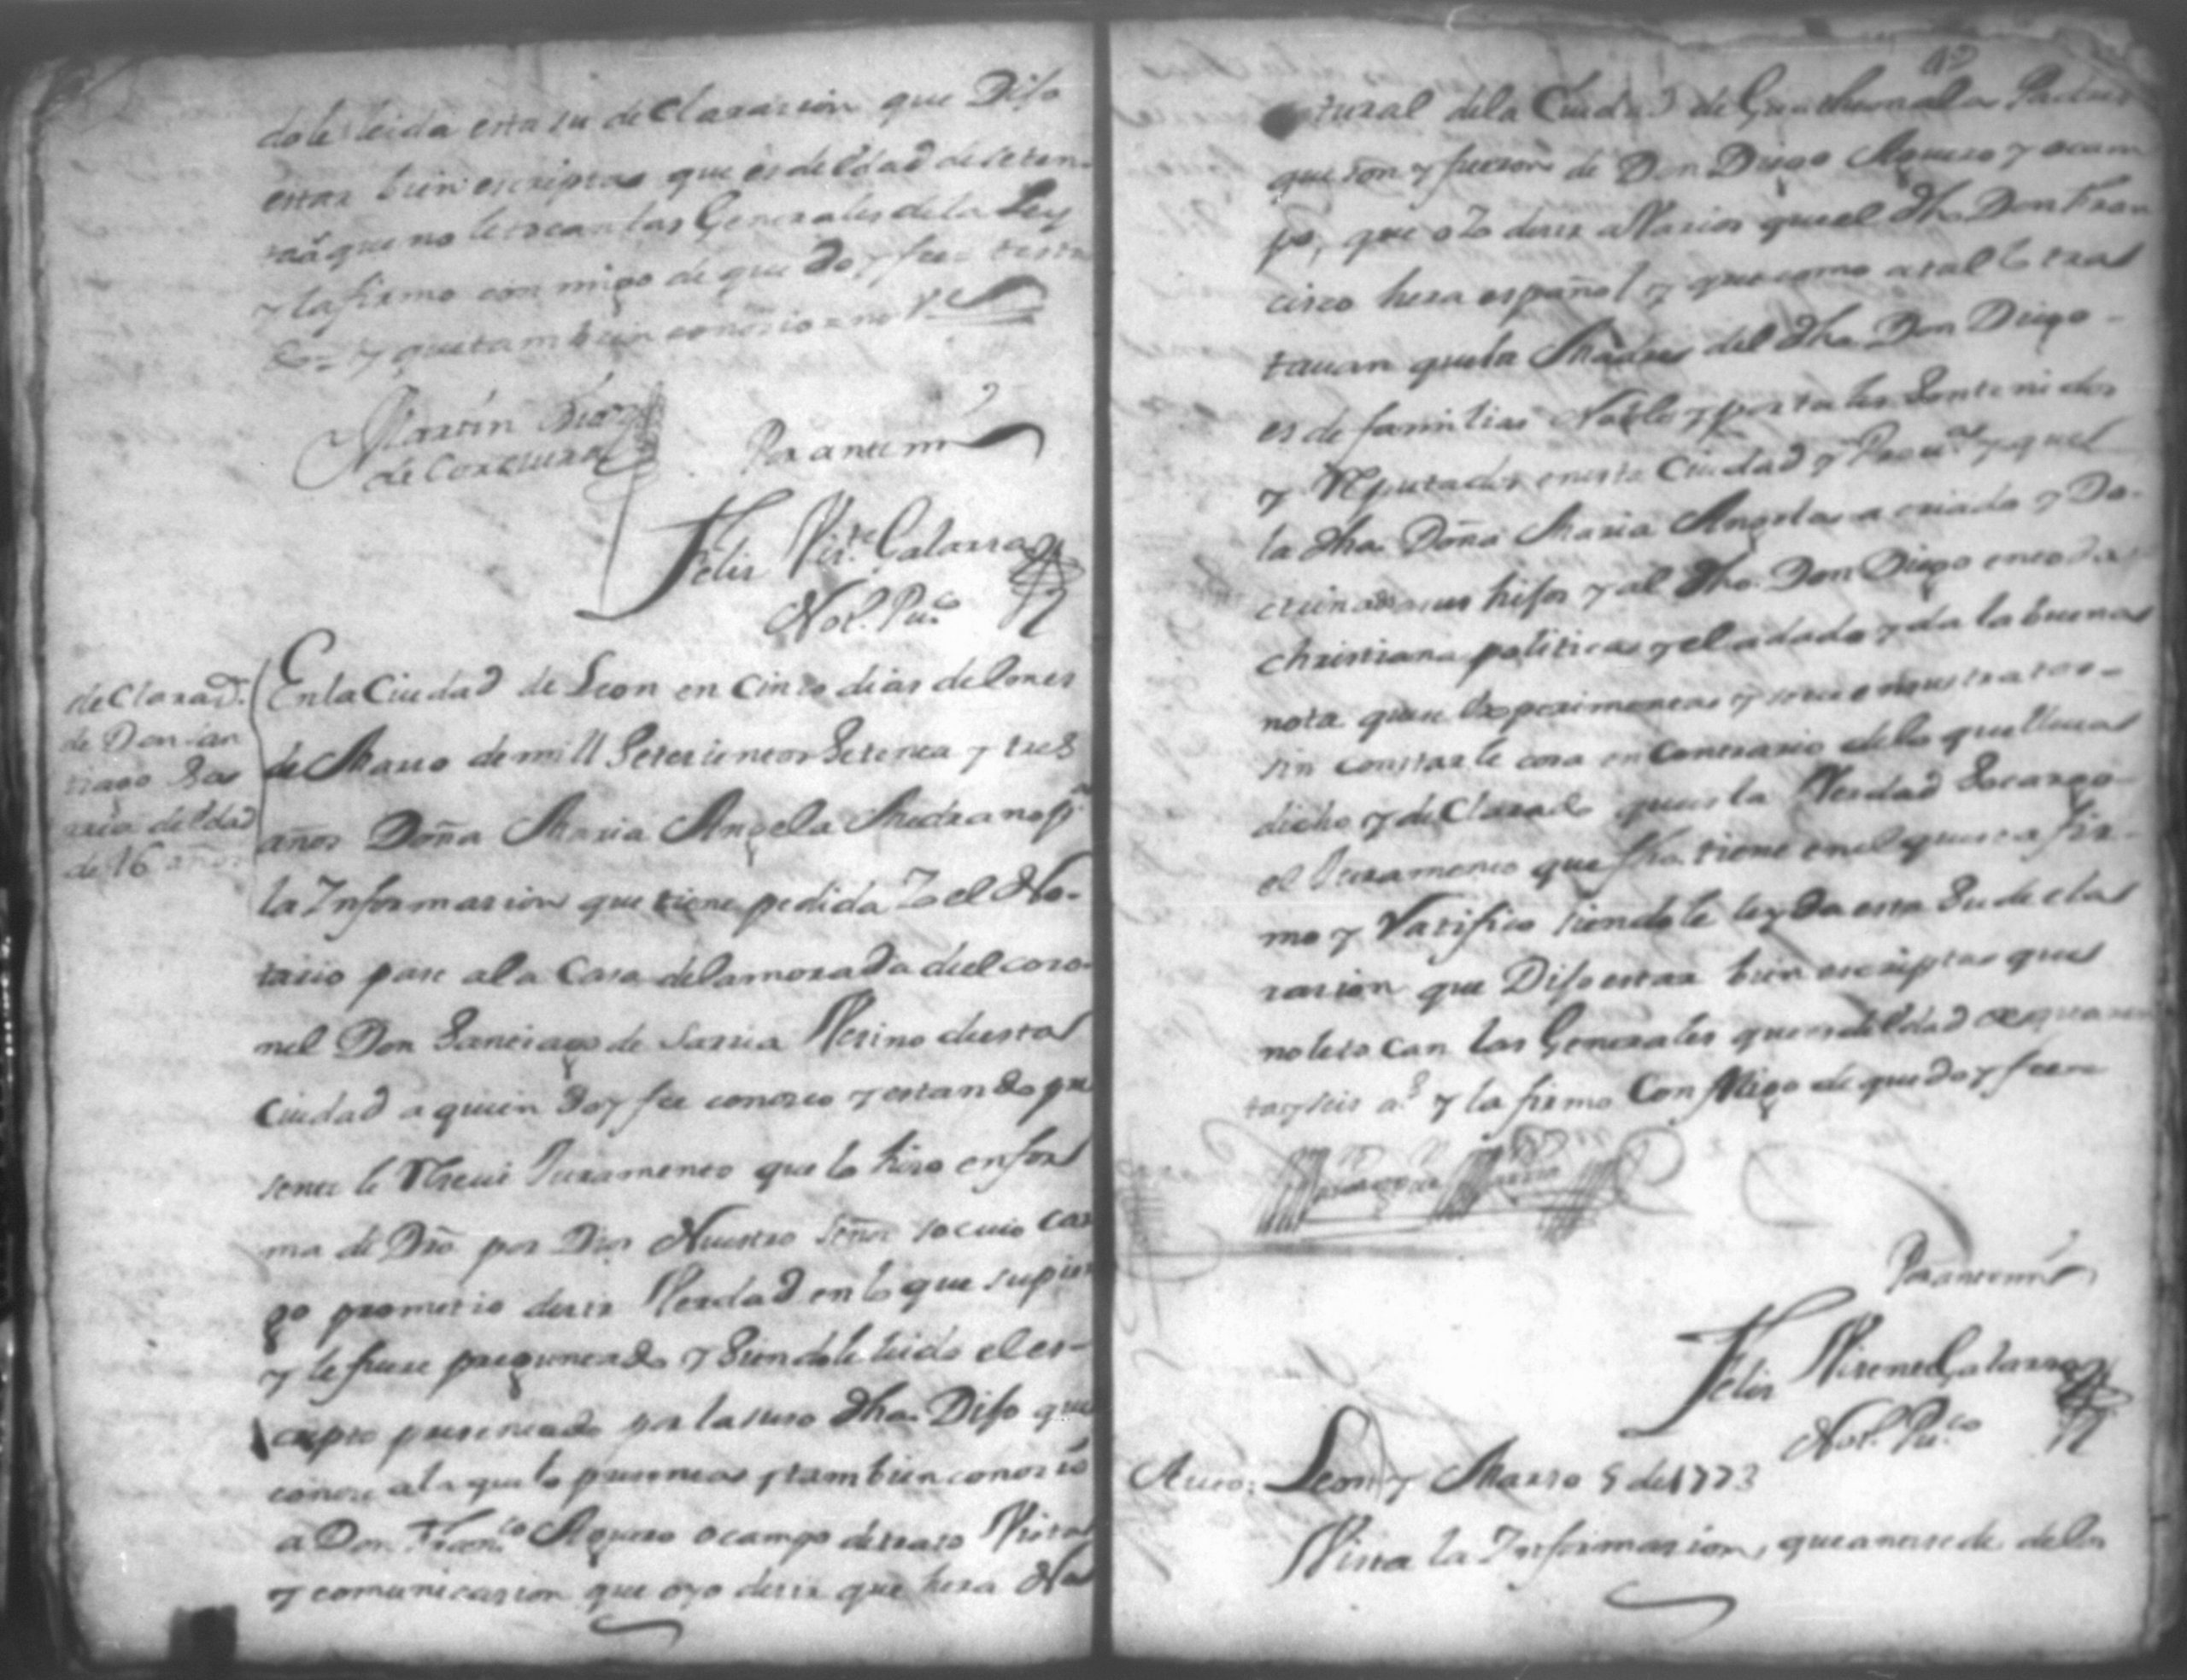 dole leida esta su declarasion que Diso
estar bien escripta que es de Edad de seten-
ta aˢ que no le tocan las Generales de la Ley
y la firmo con migo de que doy fee
y que tambien conosio
Martin Dias
de Corcuera
Por antemi
Felis Visᵗᵉ Galarra
Not. Puᶜᵒ
de Claraᵒⁿ.
de Don San
tiago Sa
rria de Edad
de 46 años
En la Ciudad de Leon en Cinco dias del mes
de Marso de mill Setesientos Setenta y tres
años Doña Maria Angela Medrano pᵃ
la Informasion que tiene pedida Yo el No-
tario pase a la Casa de la morada del coro-
nel Don Santiago de Sarria Vesino de esta
Ciudad a quien doy fee conosco y estando pre
sente le Resevi Juramento que lo hiso en for
ma de Dro por Dios Nuestro Señor so cuio car
go prometio desir Verdad en lo que supier
y le fuere preguntado y Siendole leido el es-
cripto presentado por la suso dha. Diso que
conose a la que lo presenta y tambien conosio
a Don Franᶜᵒ Aguero ocampo de trato Vista
y comunicasion que oyo desir que hera Na
tural de la Ciudad de Guathemala Padre
que son y fueron de Don Diego Aguero y ocam
po, que oio desir a Varios que el dho. Don Fran
cisco hera español y que como a tal lo tra
tavan que la Madre del dho. Don Diego
es de familias Noble y por tales Son tenidos
y Reputados en esta Ciudad y Provᵃ y que
la dha. Doña Maria Angela a criado y Do-
ctrinado a sus hisos y al dho. Don Diego en toda
christiana politica y el a dado y da la buena
nota que se experimenta y
sin constarle cosa en Contrario de lo que lleva
dicho y declarado que es la Verdad So cargo
el Juramento que fho. tiene en el que se a fir-
mo y Ratifico siendole leyda esta Su decla
rasion que Diso estar bien escripta que
no le to can las Generales que es de Edad de quaren
ta y seis aˢ y la firmo Con Migo de que doy fee
Santiago de Sarria
Por antemi
Felis Visente Galarra
Not. Puᶜᵒ
Auto: Leon y Marso 5 de 1773
Vista la Informasion, que antesede de los